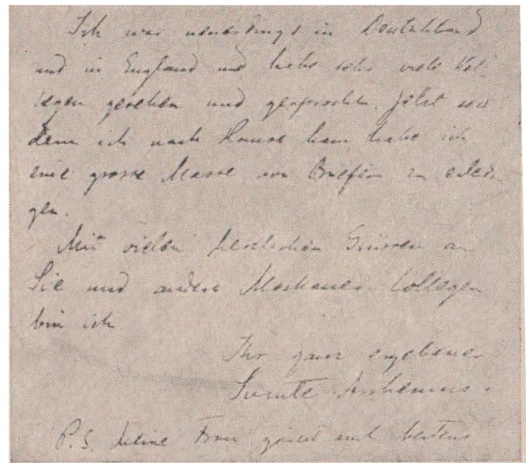 Ich war neuerdings in Deutschland
und in England und habe sehr viele Kol-
legen gesehen und gesprochen. Jetzt seit
dem ich nach Hause kam habe ich
eine grosse Masse von Briefen zu erledi-
gen.
Mit vielen herzlichen Grüssen an
Sie und andere Moskauer Collegen
bin ich
Ihr ganz ergebener
Svante Arrhenius.
P.S. Meine Frau grüsst auch bestens